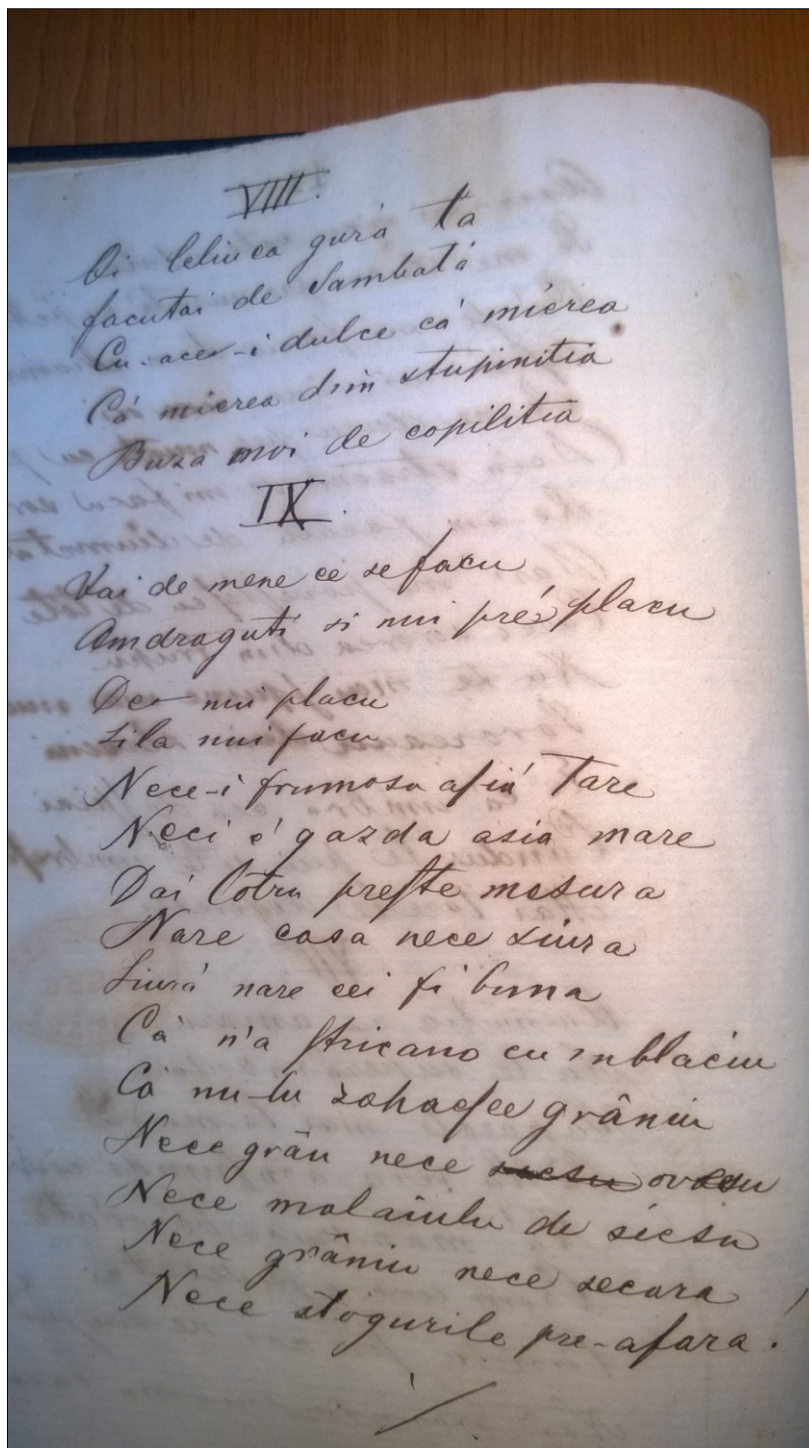 VIII.
Oi leliuca gură ta
facutai de Sambatá
Cu. ace-i dulce cá mierea
Cá mierea din stupinitia
Buza moi de copilitia
IX.
Vai de mene ce se facu
Amdraguti si mi pré placu
De mi placu
Zila mi facu
Nece-i frumosa asiá tare
Neci é gazda asia mare
Dai lotru preste mesura
Nare casa nece siura
Siurá nare cei fi buna
Cá n'a stricano cu inblaciu
Cá nu-lu zohasee grâniu
Nece grâu nece ovesu
Nece malaiulu de siesu
Nece grâniu nece secara
Nece stogurile pre-afara!